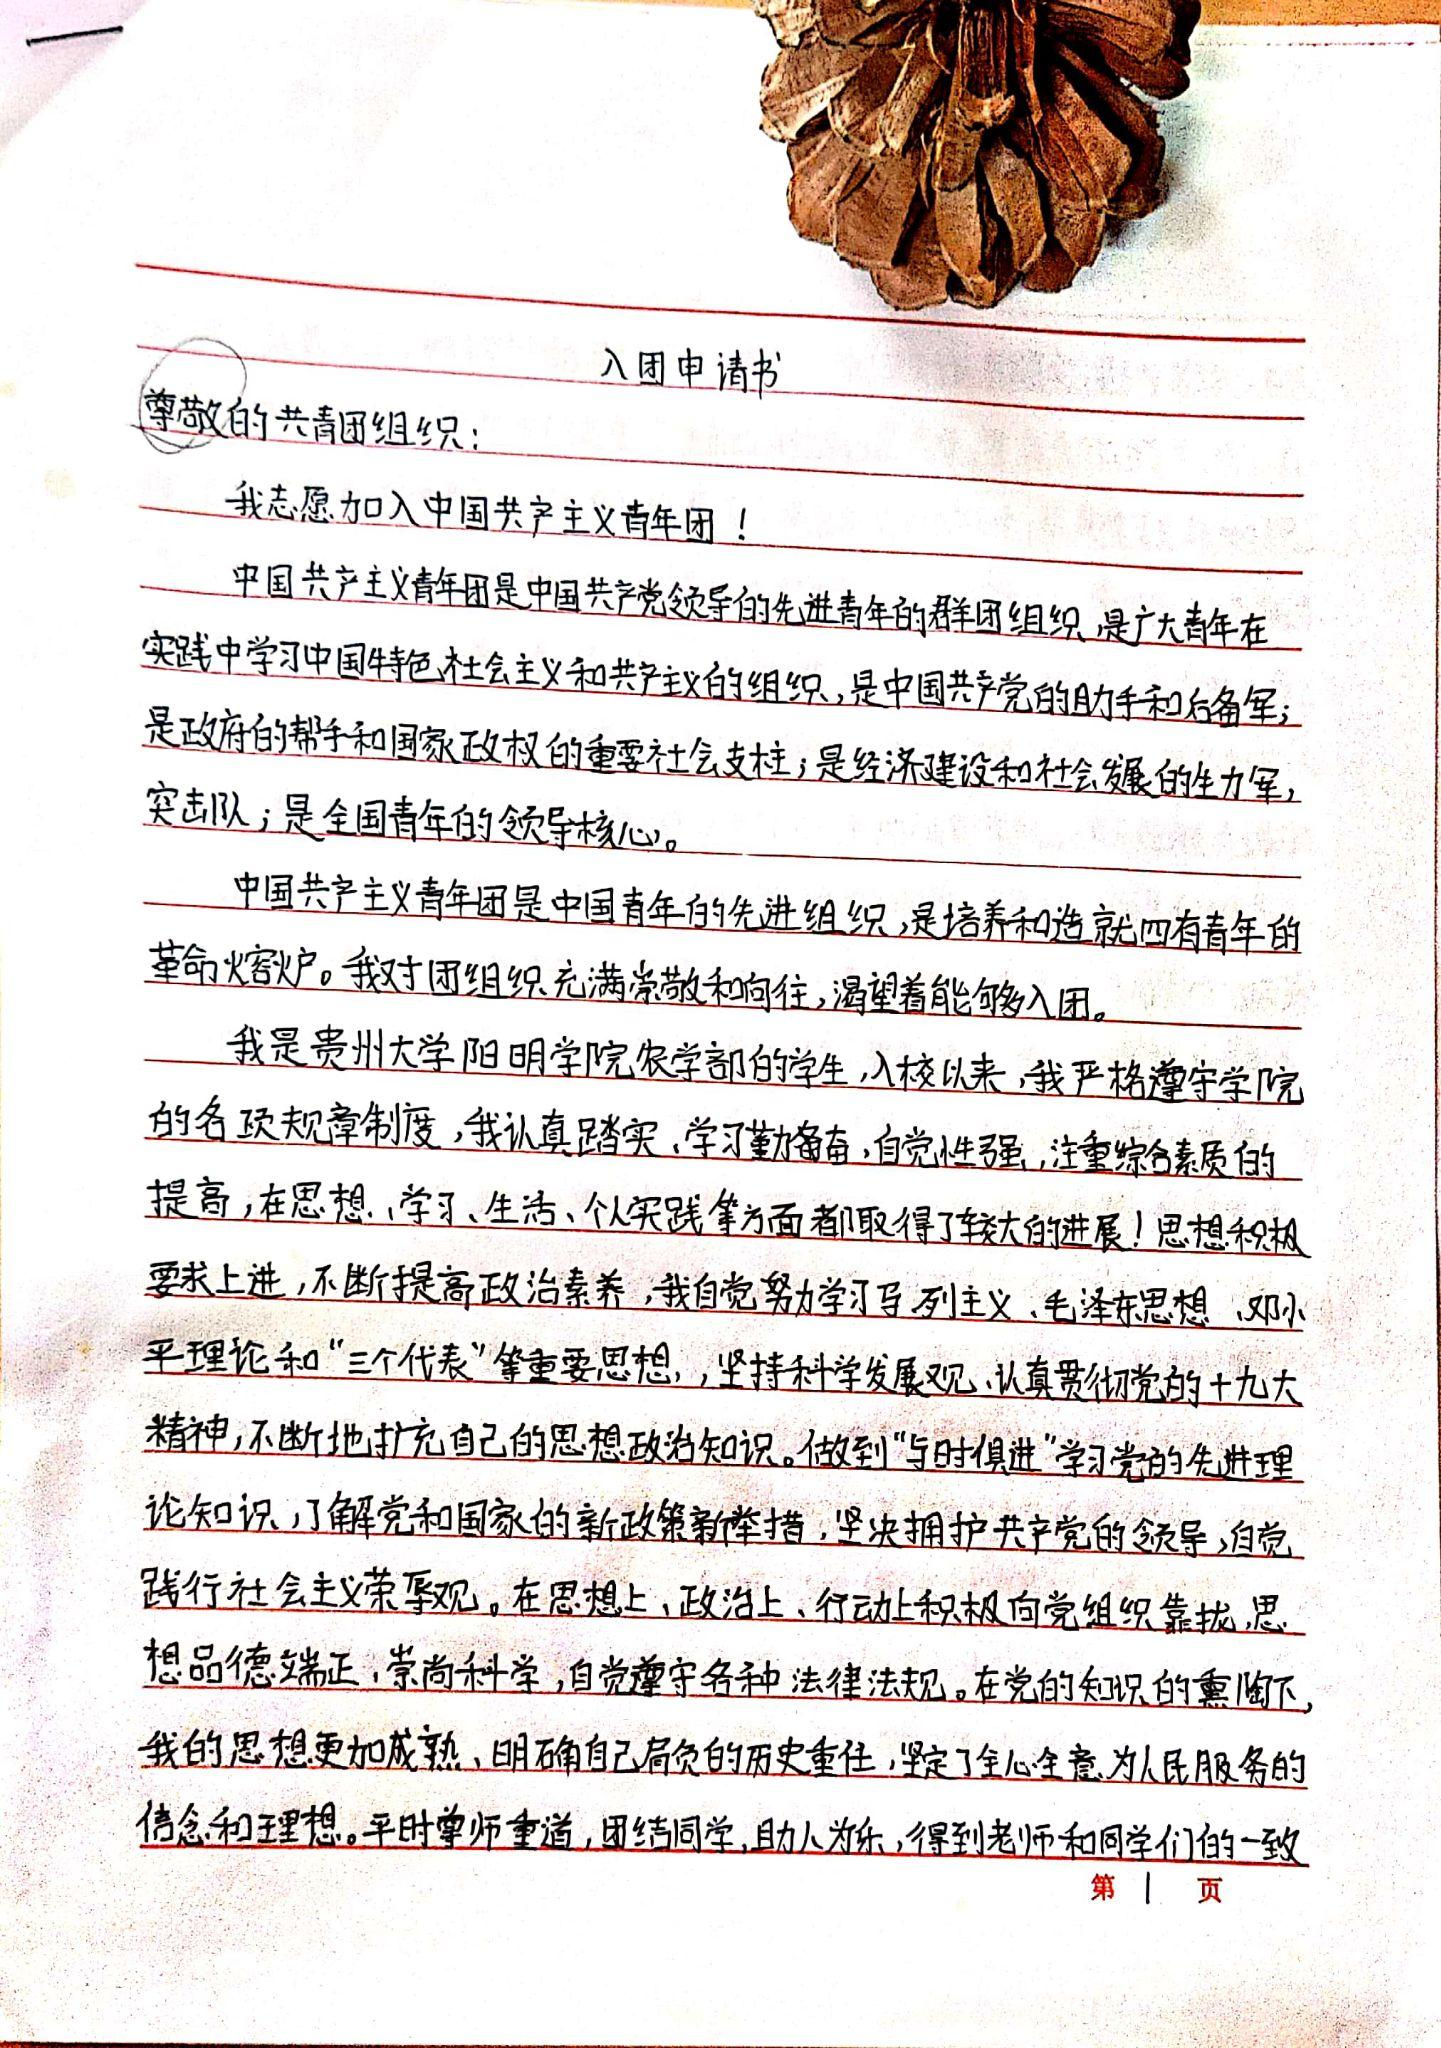 入团申请书
尊敬的共青团组织：
我志愿加入中国共产主义青年团！
中国共产主义青年团是中国共产党领导的先进青年的群团组织，是广大青年在
实践中学习中国特色社会主义和共产主义的组织，是中国共产党的助手和后备军；
是政府的帮手和国家政权的重要社会支柱；是经济建设和社会发展的生力军，
突击队；是全国青年的领导核心。
中国共产主义青年团是中国青年的先进组织，是培养和造就四有青年的
革命熔炉。我对团组织充满崇敬和向往，渴望着能够入团。
我是贵州大学阳明学院农学部的学生，入校以来，我严格遵守学院
的各项规章制度，我认真踏实、学习勤奋，自觉性强，注重综合素质的
提高，在思想、学习、生活、个人实践等方面都取得了较大的进展！思想积极
要求上进，不断提高政治素养，我自觉努力学习马列主义、毛泽东思想、邓小
平理论和“三个代表”等重要思想，坚持科学发展观、认真贯彻党的十九大
精神，不断地扩充自己的思想政治知识。做到“与时俱进”学习党的先进理
论知识，了解党和国家的新政策新举措，坚决拥护共产党的领导，自觉
践行社会主义荣辱观。在思想上、政治上、行动上积极向党组织靠拢，思
想品德端正，崇尚科学，自觉遵守各种法律法规。在党的知识的熏陶下，
我的思想更加成熟、明确自己肩负的历史重任，坚定了全心全意为人民服务的
信念和理想。平时尊师重道，团结同学，助人为乐，得到老师和同学们的一致
第 1 页